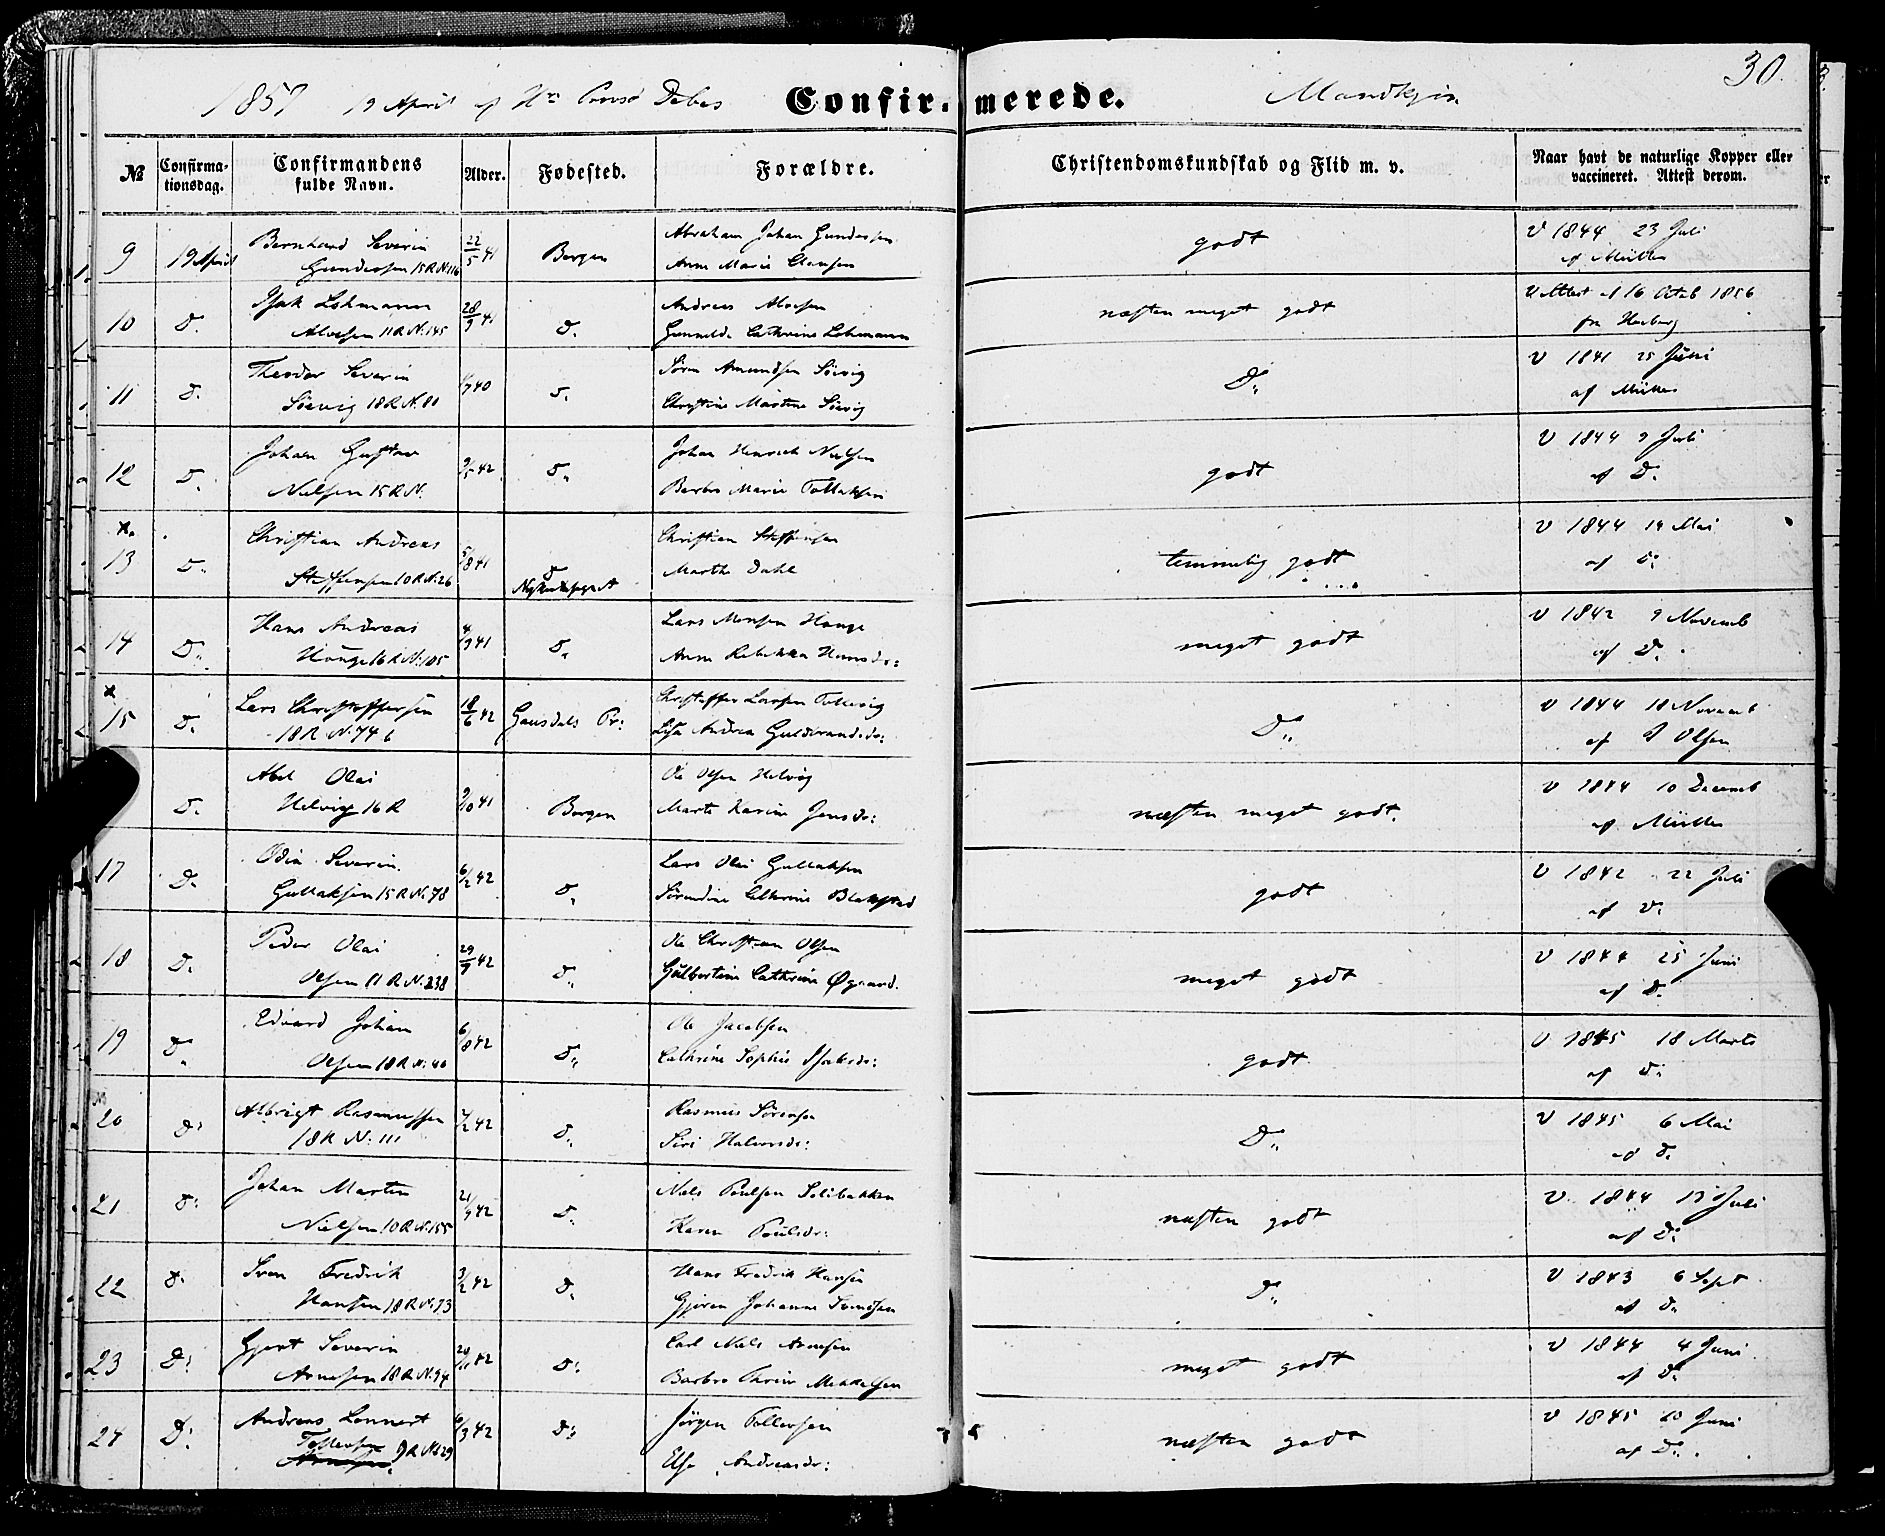 30.
1857 19 April af Hr Debes Confirmerede. Mandkjøn
№ Confirmationsdag. Confirmandens fulde Navn. Alder. Fødested. Forældre. Christendomskundskab og Flid m. v. Naar havt de naturlige Kopper eller vaccineret. Attest derom.
9 19 April Bernhard Severin 22/5 41 Bergen Abraham Johan Gundersen godt V 1844 23 Juli
Gundersen 15 R N: 116 Anne Marie Clausen af Müller
10 D. Isak Lehmann 28/9 41 D. Andreas Alvesen næsten meget godt V Attest af 16 Octob 1856
Alvesen 11 R N. 145 Gunnelde Cathrine Lehmann
11 D. Theodor Severin 40 D. Sören Amundsen Sörvig D: V 1841 25 Juni
Sörvig 18 R N. 80 Christine Martine Sörvig af Müller
12 D. Johan Gustav 9/5 42 D. Johan Henrich Nielsen godt V 1844 9 Juli
Nielsen 15 R N. Barbro Marie Tollaksen af D.
x
13 D. Christian Andreas 5/8 41 D Christian Steffensen temmelig godt V 1844 14 Mai
Steffensen 10 R N: 26 Nykirkesognet Marthe Dahl af D:
14 D. Hans Andreas 4/9 41 D. Lars Monsen Hauge meget godt V 1842 9 Novemb
Hauge 16 R N: 105 Anne Rebekka Hansdr: af D.
x
15 D. Lars Christoffersen 18/6 42 Gausdals Pr: Christoffer Larsen Tollevig D: V 1844 18 Novemb
18 R N. 74 b Lisa Andrea Guldbrandsdr: af Olsen
D. Abel Olai 9/10 41 Bergen Ole Olsen Helvig næsten meget godt. V 1844 10 Decemb
Helvig 16 R Marte Karine Jensdr: af Müller
17 D. Odin Severin 6/2 42 D. Lars Olai Gullaksen godt V 1842 22 Juli
Gullaksen 15 R N: 78 Sörendine Cathrine Blakstad af D:
18 D. Peder Olai 29/9 42 D. Ole Christian Olsen meget godt V 1844 25 Juni
Olsen 11 R N. 238 Gulbertine Cathrine Øgaard. af D.
19 D. Edvard Johan 6/8 42 D. Ole Jacobsen godt V 1845 18 Marts
Olsen 18 R N: 40 Cathrine Sophie Isaksdr: af D:
20 D: Albrigt Rasmussen 7/2 42 D. Rasmus Sörensen D: V 1845 6 Mai
18 R N: 111 Siri Halvorsdr: af D.
21 D: Johan Martin 21/9 42 D. Niels Poulsen Solibakken næsten godt V. 1844 15 Juli
Nielsen 10 R N. 155 Karen Poulsdr: af D:
22 D. Sven Fredrik 3/2 42 D. Hans Fredrik Hansen D: V 1843 6 Sept
Hansen 18 R N: 73 Gjøren Johanne Svendsen af D.
23 D: Gjert Severin 20/11 42 D: Carl Niels Arnesen meget godt V 1844 4 Juni
Arnesen 18 R N. 94 Barbro Thrine Mikkelsen af D.
24 D: Andreas Lennert 6/3 42 D: Jörgen Tollevsen næsten godt V 1845 10 Juni
Tollevsen 9 R N: 629 Else Andreasdr: af D: